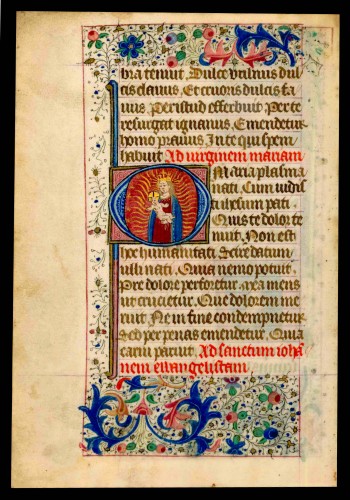 bra tenuit. Dulce vulnus dul
cis clavus. Et cruoris dulcis fa
vus. Per istud efferbuit. Per te
resurgat ignavus. Emendetur
homo pravus. In te qui spem
habuit Ad virginem mariam
O Maria plasma
nati. Cum vidis
ti ihesum pati.
Quis te dolor te
nuit. Non est
hoc humanitati. Scire datum
nisi nati. Quia nemo potuit.
Pre dolore perforetur. Mea mens
ut crucietur. Que dolorem me
ruit Ne in fine condempnetur
Sed per penas emendetur. Quia
carni paruit. Ad sanctum ioha
nem ewangelistam